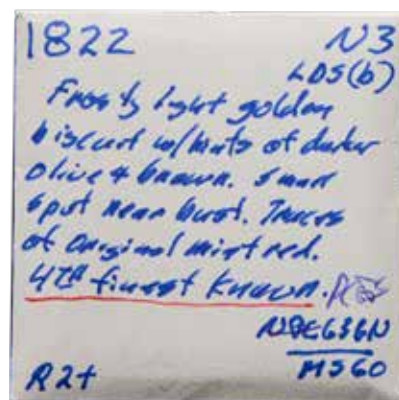 1822 N3
LDS(b)
Frosty light golden
biscuit w/hints of darker
olive & brown. Small
spot near bust. Traces
of original mint red.
4TH finest known.
MS60
R2+